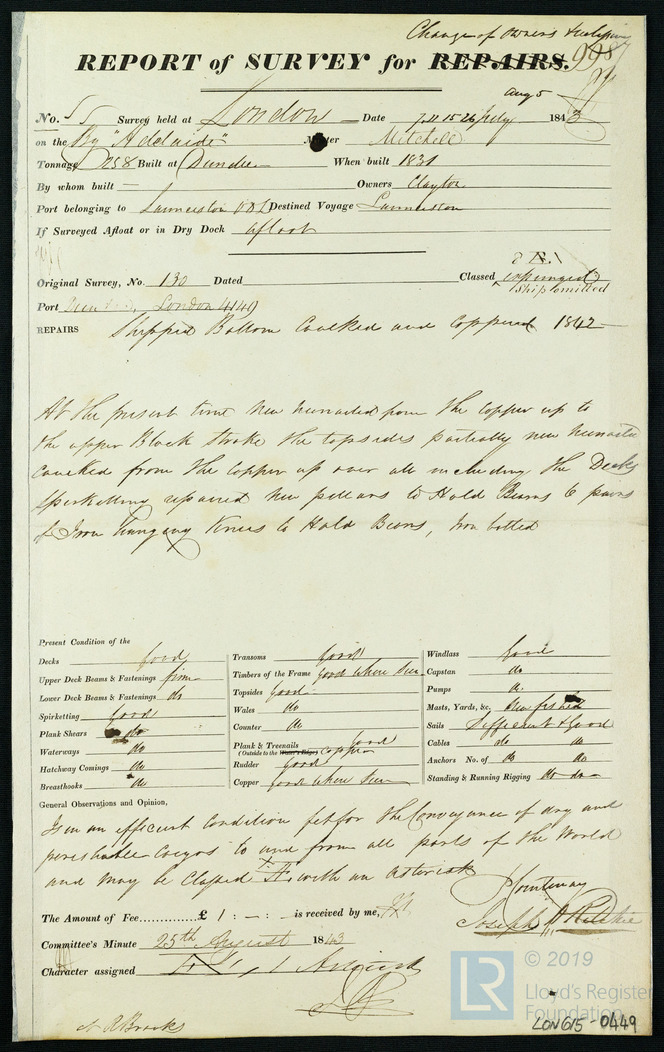 Change of Owners &
REPORT of SURVEY for REPAIRS. 998
Aug 5
No. Survey held at London Date 7. 11 15 26 July 1843
on the Bg "Adelaide" Master Mitchell
Tonnage 258 Built at Dundee When built 1831
By whom built — Owners Clayton
Port belonging to Launceston VDL Destined Voyage Launceston
If Surveyed Afloat or in Dry Dock afloat
Original Survey, No. 130 Dated Classed expunged
Ship omitted
Port London
REPAIRS Shipped Bottom Caulked and Coppered 1842
At the present time New the Copper up to
the upper Black Strake the topsides partially new
Caulked from the Copper up over all including the Decks
Spirketting repaired New pillars to Hold Beams 6 pairs
of Iron hanging Knees to Hold Beams, Iron bolted
Present Condition of the
Decks Good
Upper Deck Beams & Fastenings firm
Lower Deck Beams & Fastenings do
Spirketting Good
Plank Shears do
Waterways do
Hatchway Comings do
Breasthooks do
Transoms Good
Timbers of the Frame Good where seen
Topsides Good
Wales do
Counter do
Plank & Treenails Good
(Outside to the Water's Edge) Copper
Rudder Good
Copper Good where seen
Windlass Good
Capstan do
Pumps do
Masts, Yards, &c. New fished
Sails Sufficient & Good
Cables do do
Anchors No. of do do
Standing & Running Rigging do do
General Observations and Opinion,
Is in an efficient Condition fit for the Conveyance of dry and
perishable Cargos to and from all parts of the World
and may be Classed Æ with an Asterisk
The Amount of Fee............£ 1 : — : — is received by me,
Joseph H Ritchie
Committee's Minute 25th August 1843
Character assigned
© 2019
LR
Lloyd's Register
Foundation
LON615-0449